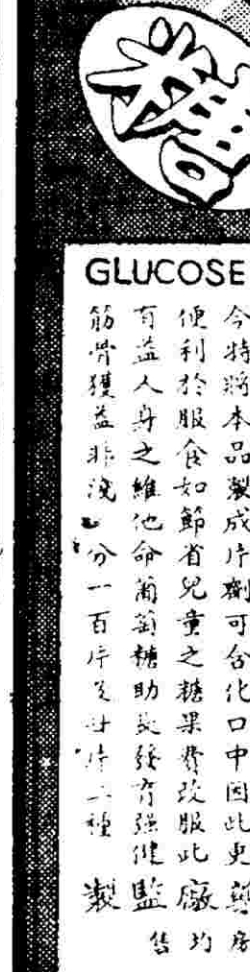 糖
GLUCOSE
今特將本品製成片劑可含化口中因此更
便利於服食如節省兒童之糖果費改服此
有益人身之維他命葡萄糖助長發育强健
筋骨獲益非淺 分一百片 片二種
藥房
廠均
監售
製